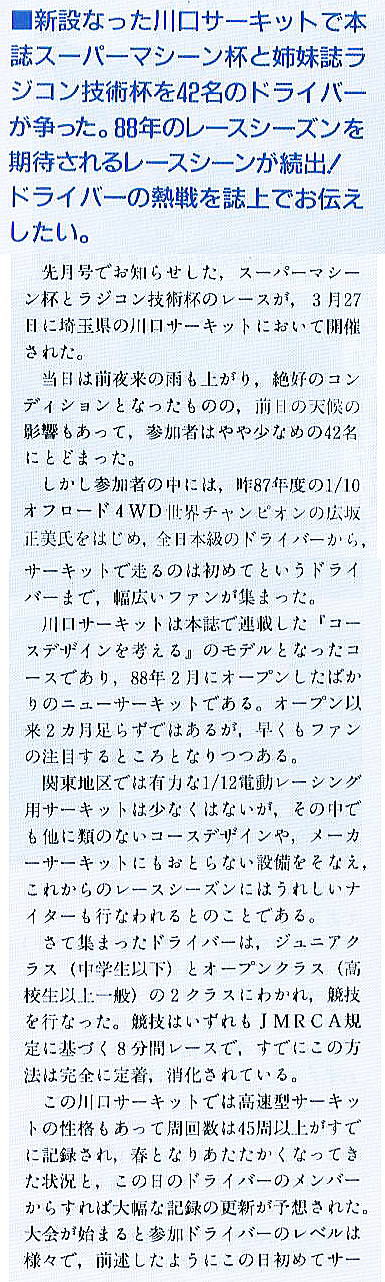 ■新設なった川口サーキットで本
誌スーパーマシーン杯と姉妹誌ラ
ジコン技術杯を42名のドライバー
が争った。88年のレースシーズンを
期待されるレースシーンが続出!
ドライバーの熱戦を誌上でお伝え
したい。
先月号でお知らせした，スーパーマシー
ン杯とラジコン技術杯のレースが，3月27
日に埼玉県の川口サーキットにおいて開催
された。
当日は前夜来の雨も上がり，絶好のコン
ディションとなったものの，前日の天候の
影響もあって，参加者はやや少なめの42名
にとどまった。
しかし参加者の中には，昨87年度の1/10
オフロード4WD世界チャンピオンの広坂
正美氏をはじめ，全日本級のドライバーから，
サーキットで走るのは初めてというドライ
バーまで，幅広いファンが集まった。
川口サーキットは本誌で連載した『コー
スデザインを考える』のモデルとなったコ
ースであり，88年2月にオープンしたばか
りのニューサーキットである。オープン以
来2カ月足らずではあるが，早くもファン
の注目するところとなりつつある。
関東地区では有力な1/12電動レーシング
用サーキットは少なくはないが，その中で
も他に類のないコースデザインや，メーカ
ーサーキットにもおとらない設備をそなえ，
これからのレースシーズンにはうれしいナ
イターも行なわれるとのことである。
さて集まったドライバーは，ジュニアク
ラス（中学生以下）とオープンクラス（高
校生以上一般）の2クラスにわかれ，競技
を行なった。競技はいずれもJMRCA規
定に基づく8分間レースで，すでにこの方
法は完全に定着，消化されている。
この川口サーキットでは高速型サーキッ
トの性格もあって周回数は45周以上がすで
に記録され，春となりあたたかくなってき
た状況と，この日のドライバーのメンバー
からすれば大幅な記録の更新が予想された。
大会が始まると参加ドライバーのレベルは
様々で，前述したようにこの日初めてサー